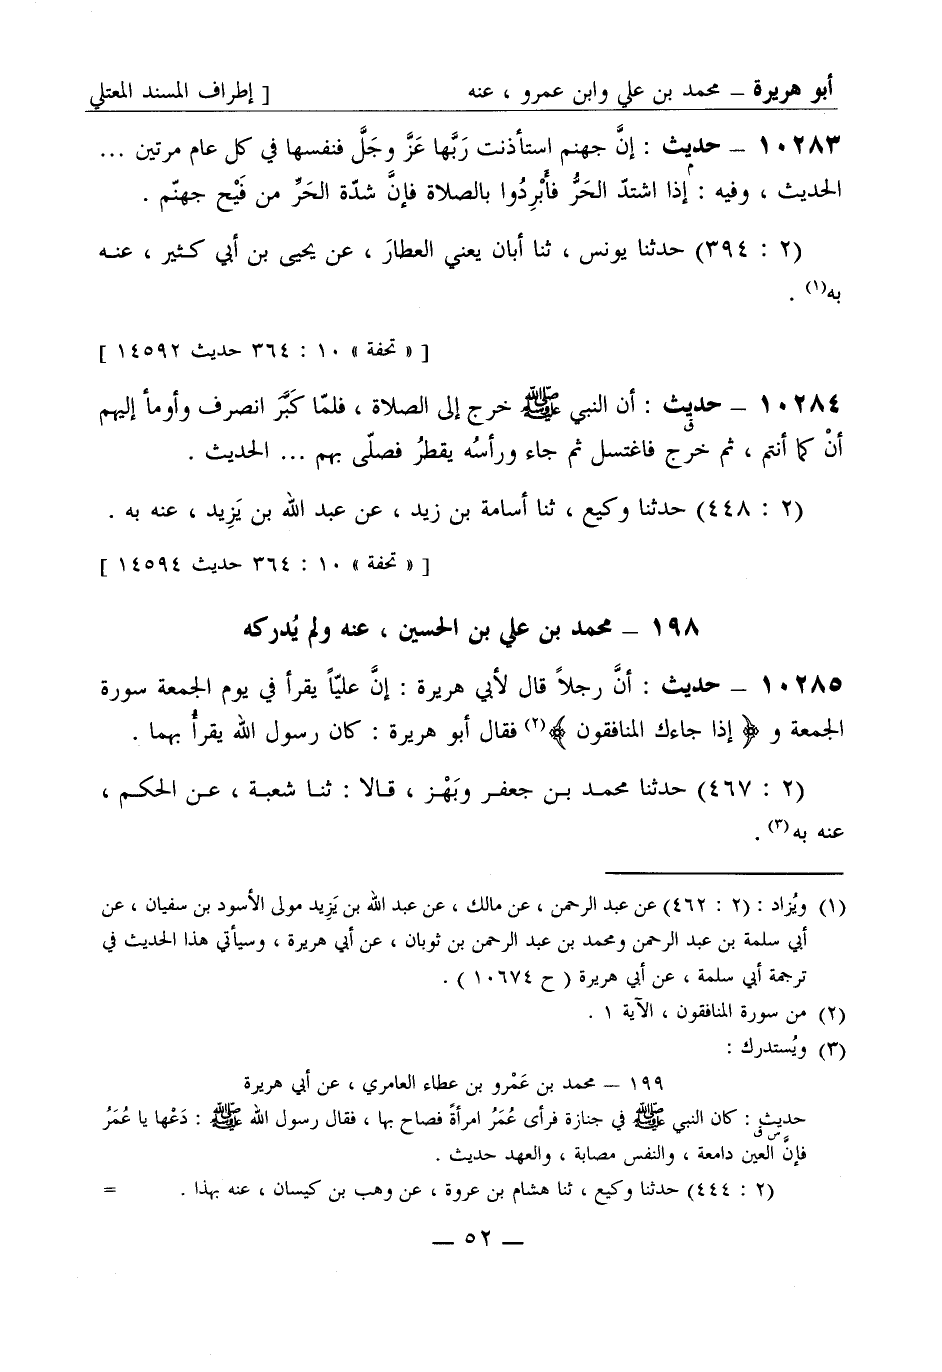 أبو هريرة – محمد بن علي وابن عمرو ، عنه [ إطراف المسند المعتلي
١٠٢٨٣ – حديث : إنَّ جهنم استأذنت رَبَّها عَزَّ وجَلَّ فنفسها في كل عام مرتين ...
م
الحديث ، وفيه : إذا اشتدّ الحَرُّ فأَبْرِدُوا بالصلاة فإنَّ شدّة الحَرِّ من فَيْح جهنّم .
(٢ : ٣٩٤) حدثنا يونس ، ثنا أبان يعني العطارَ ، عن يحيى بن أبي كثير ، عنه
به(١) .
[ « تحفة » ١٠ : ٣٦٤ حديث ١٤٥٩٢ ]
١٠٢٨٤ – حديث : أن النبي ﷺ خرج إلى الصلاة ، فلمّا كَبَّر انصرف وأومأ إليهم
ق
أنْ كما أنتم ، ثم خرج فاغتسل ثم جاء ورأسُه يقطرُ فصلّى بهم ... الحديث .
(٢ : ٤٤٨) حدثنا وكيع ، ثنا أسامة بن زيد ، عن عبد الله بن يَزِيد ، عنه به .
[ « تحفة » ١٠ : ٣٦٤ حديث ١٤٥٩٤ ]
١٩٨ – محمد بن علي بن الحسين ، عنه ولم يُدركه
١٠٢٨٥ – حديث : أنَّ رجلاً قال لأبي هريرة : إنَّ عليّاً يقرأ في يوم الجمعة سورة
الجمعة و ﴿ إذا جاءك المنافقون ﴾(٢) فقال أبو هريرة : كان رسول الله يقرأُ بهما .
(٢ : ٤٦٧) حدثنا محمد بن جعفر وبَهْز ، قالا : ثنا شعبة ، عن الحكم ،
عنه به(٣) .
(١) ويُزاد : (٢ : ٤٦٢) عن عبد الرحمن ، عن مالك ، عن عبد الله بن يَزِيد مولى الأسود بن سفيان ، عن
أبي سلمة بن عبد الرحمن ومحمد بن عبد الرحمن بن ثوبان ، عن أبي هريرة ، وسيأتي هذا الحديث في
ترجمة أبي سلمة ، عن أبي هريرة ( ح ١٠٦٧٤ ) .
(٢) من سورة المنافقون ، الآية ١ .
(٣) ويُستدرك :
١٩٩ – محمد بن عَمْرو بن عطاء العامري ، عن أبي هريرة
حديث : كان النبي ﷺ في جنازة فرأى عُمَرُ امرأةً فصاح بها ، فقال رسول الله ﷺ : دَعْها يا عُمَرُ
س ق
فإنَّ العين دامعة ، والنفس مصابة ، والعهد حديث .
(٢ : ٤٤٤) حدثنا وكيع ، ثنا هشام بن عروة ، عن وهب بن كيسان ، عنه بهذا . =
– ٥٢ –